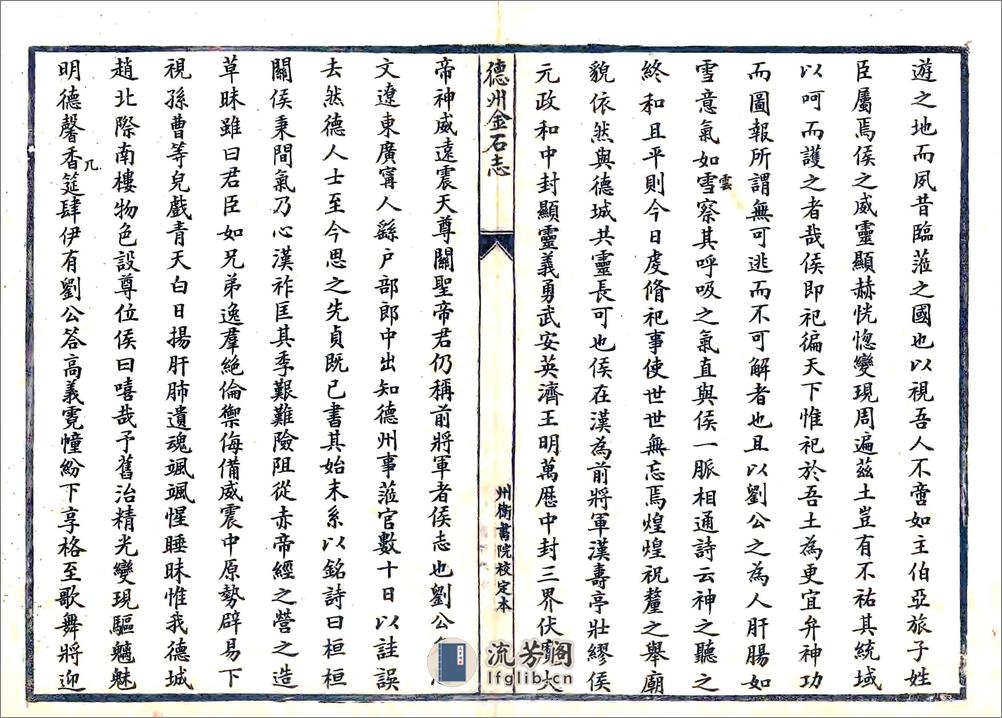 遊之地而夙昔臨蒞之國也以視吾人不啻如主伯亞旅子姓
臣屬焉侯之威靈顯赫恍惚變現周遍茲土豈有不祐其統域
以呵而護之者哉侯即祀徧天下惟祀於吾土為更宜弁神功
而圖報所謂無可逃而不可解者也且以劉公之為人肝腸如
雪意氣如雪雲察其呼吸之氣直與侯一脈相通詩云神之聽之
終和且平則今日虔脩祀事使世世無忘焉煌煌祝釐之舉廟
貌依然與德城共靈長可也侯在漢為前將軍漢壽亭壯繆侯
元政和中封顯靈義勇武安英濟王明萬歷中封三界伏
德州金石志
州衛書院校定本
帝神威遠震天尊關聖帝君仍稱前將軍者侯志也劉公
文遼東廣寗人繇戶部郎中出知德州事蒞官數十日以詿誤
去然德人士至今思之先貞既已書其始末系以銘詩曰桓桓
關侯秉間氣乃心漢祚匡其季艱難險阻從赤帝經之營之造
草昧雖曰君臣如兄弟逸羣絕倫禦侮備威震中原勢辟易下
視孫曹等兒戲青天白日揚肝肺遺魂颯颯惺睡昧惟我德城
趙北際南樓物色設尊位侯曰嘻哉予舊治精光變現驅魑魅
明德馨香筵几肆伊有劉公答高義霓幢紛下享格至歌舞將迎
流芳閣
lfglib.cn